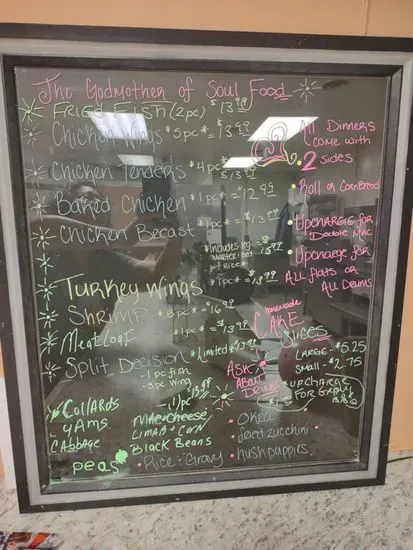 The Godmother of Soul Food
FRIED FISH (2pc) $13.99
Chicken Wings *5pc* = $13.99
Chicken Tenders *4pc* $13.99
Baked Chicken *1pc* = $12.99
Chicken Breast *1pc* = $13.99
*Includes leg
*1pc* = $13.99
Turkey Wings
Shrimp *8pc* = $16.99
Meatloaf *1pc* = $13.99
Split Decision *Limited*
• 1pc fish
• 3pc wing
All Dinners
come with
• 2 sides
• Roll or Cornbread
• Upcharge for
Double Mac
• Upcharge for
All flats or
All Drums
homemade
CAKE
Slices
LARGE - $5.25
SMALL - $2.75
ASK
ABOUT
DRINK
*UPCHARGE
FOR GRAVY
Collards
Yams
Cabbage
peas
Mac + Cheese
LIMAB + CORN
Black Beans
• Rice + Gravy
• Okra
• fried zucchini
• hushpuppies